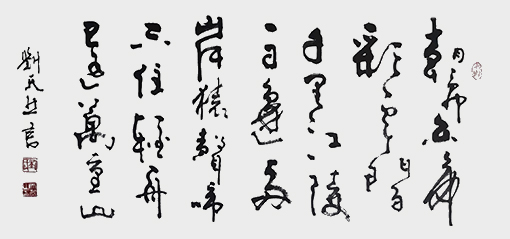 朝辭白帝
彩雲間
千里江陵
一日還兩
岸猿聲啼
不住輕舟
已過萬重山
劉 書